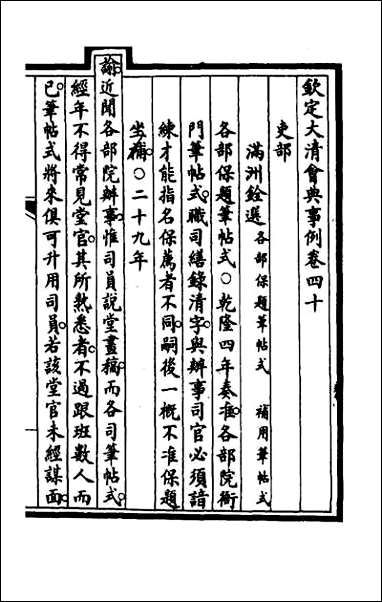 欽定大清會典事例卷四十
吏部
滿洲銓選 各部保題筆帖式 補用筆帖式
各部保題筆帖式○乾隆四年奏准各部院衙
門筆帖式職司繕錄清字與辦事司官必須諳
練才能指名保薦者不同嗣後一概不准保題
坐補○二十九年
諭近聞各部院辦事惟司員說堂畫稿而各司筆帖式
經年不得常見堂官其所熟悉者不過跟班數人而
已筆帖式將來俱可升用司員若該堂官未經謀面